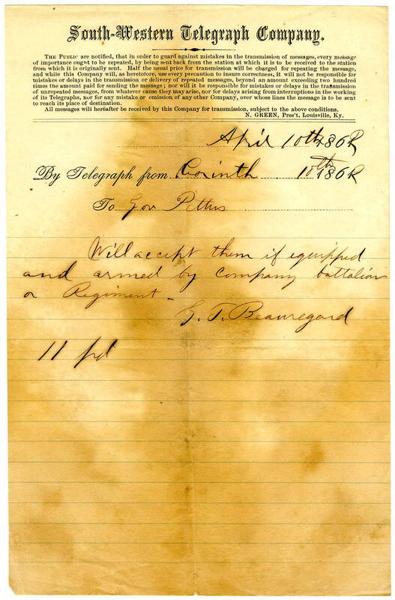 South-Western Telegraph Company.
THE PUBLIC are notified, that in order to guard against mistakes in the transmission of messages, every message
of importance ought to be repeated, by being sent back from the station at which it is to be received to the station
from which it is originally sent. Half the usual price for transmission will be charged for repeating the message,
and while this Company will, as heretofore, use every precaution to insure correctness, it will not be responsible for
mistakes or delays in the transmission or delivery of repeated messages, beyond an amount exceeding two hundred
times the amount paid for sending the message; nor will it be responsible for mistakes or delays in the transmission
of unrepeated messages, from whatever cause they may arise, nor for delays arising from interruptions in the working
of its Telegraphs, nor for any mistake or omission of any other Company, over whose lines the message is to be sent
to reach its place of destination.
All messages will hereafter be received by this Company for transmission, subject to the above conditions.
N. GREEN, Pres't, Louisville, Ky.
April 10th 1862
By Telegraph from Corinth 10th 1862
To Gov Pettus
Will accept them if equipped
and armed by company battalion
or Regiment -
G. T. Beauregard
11 pd